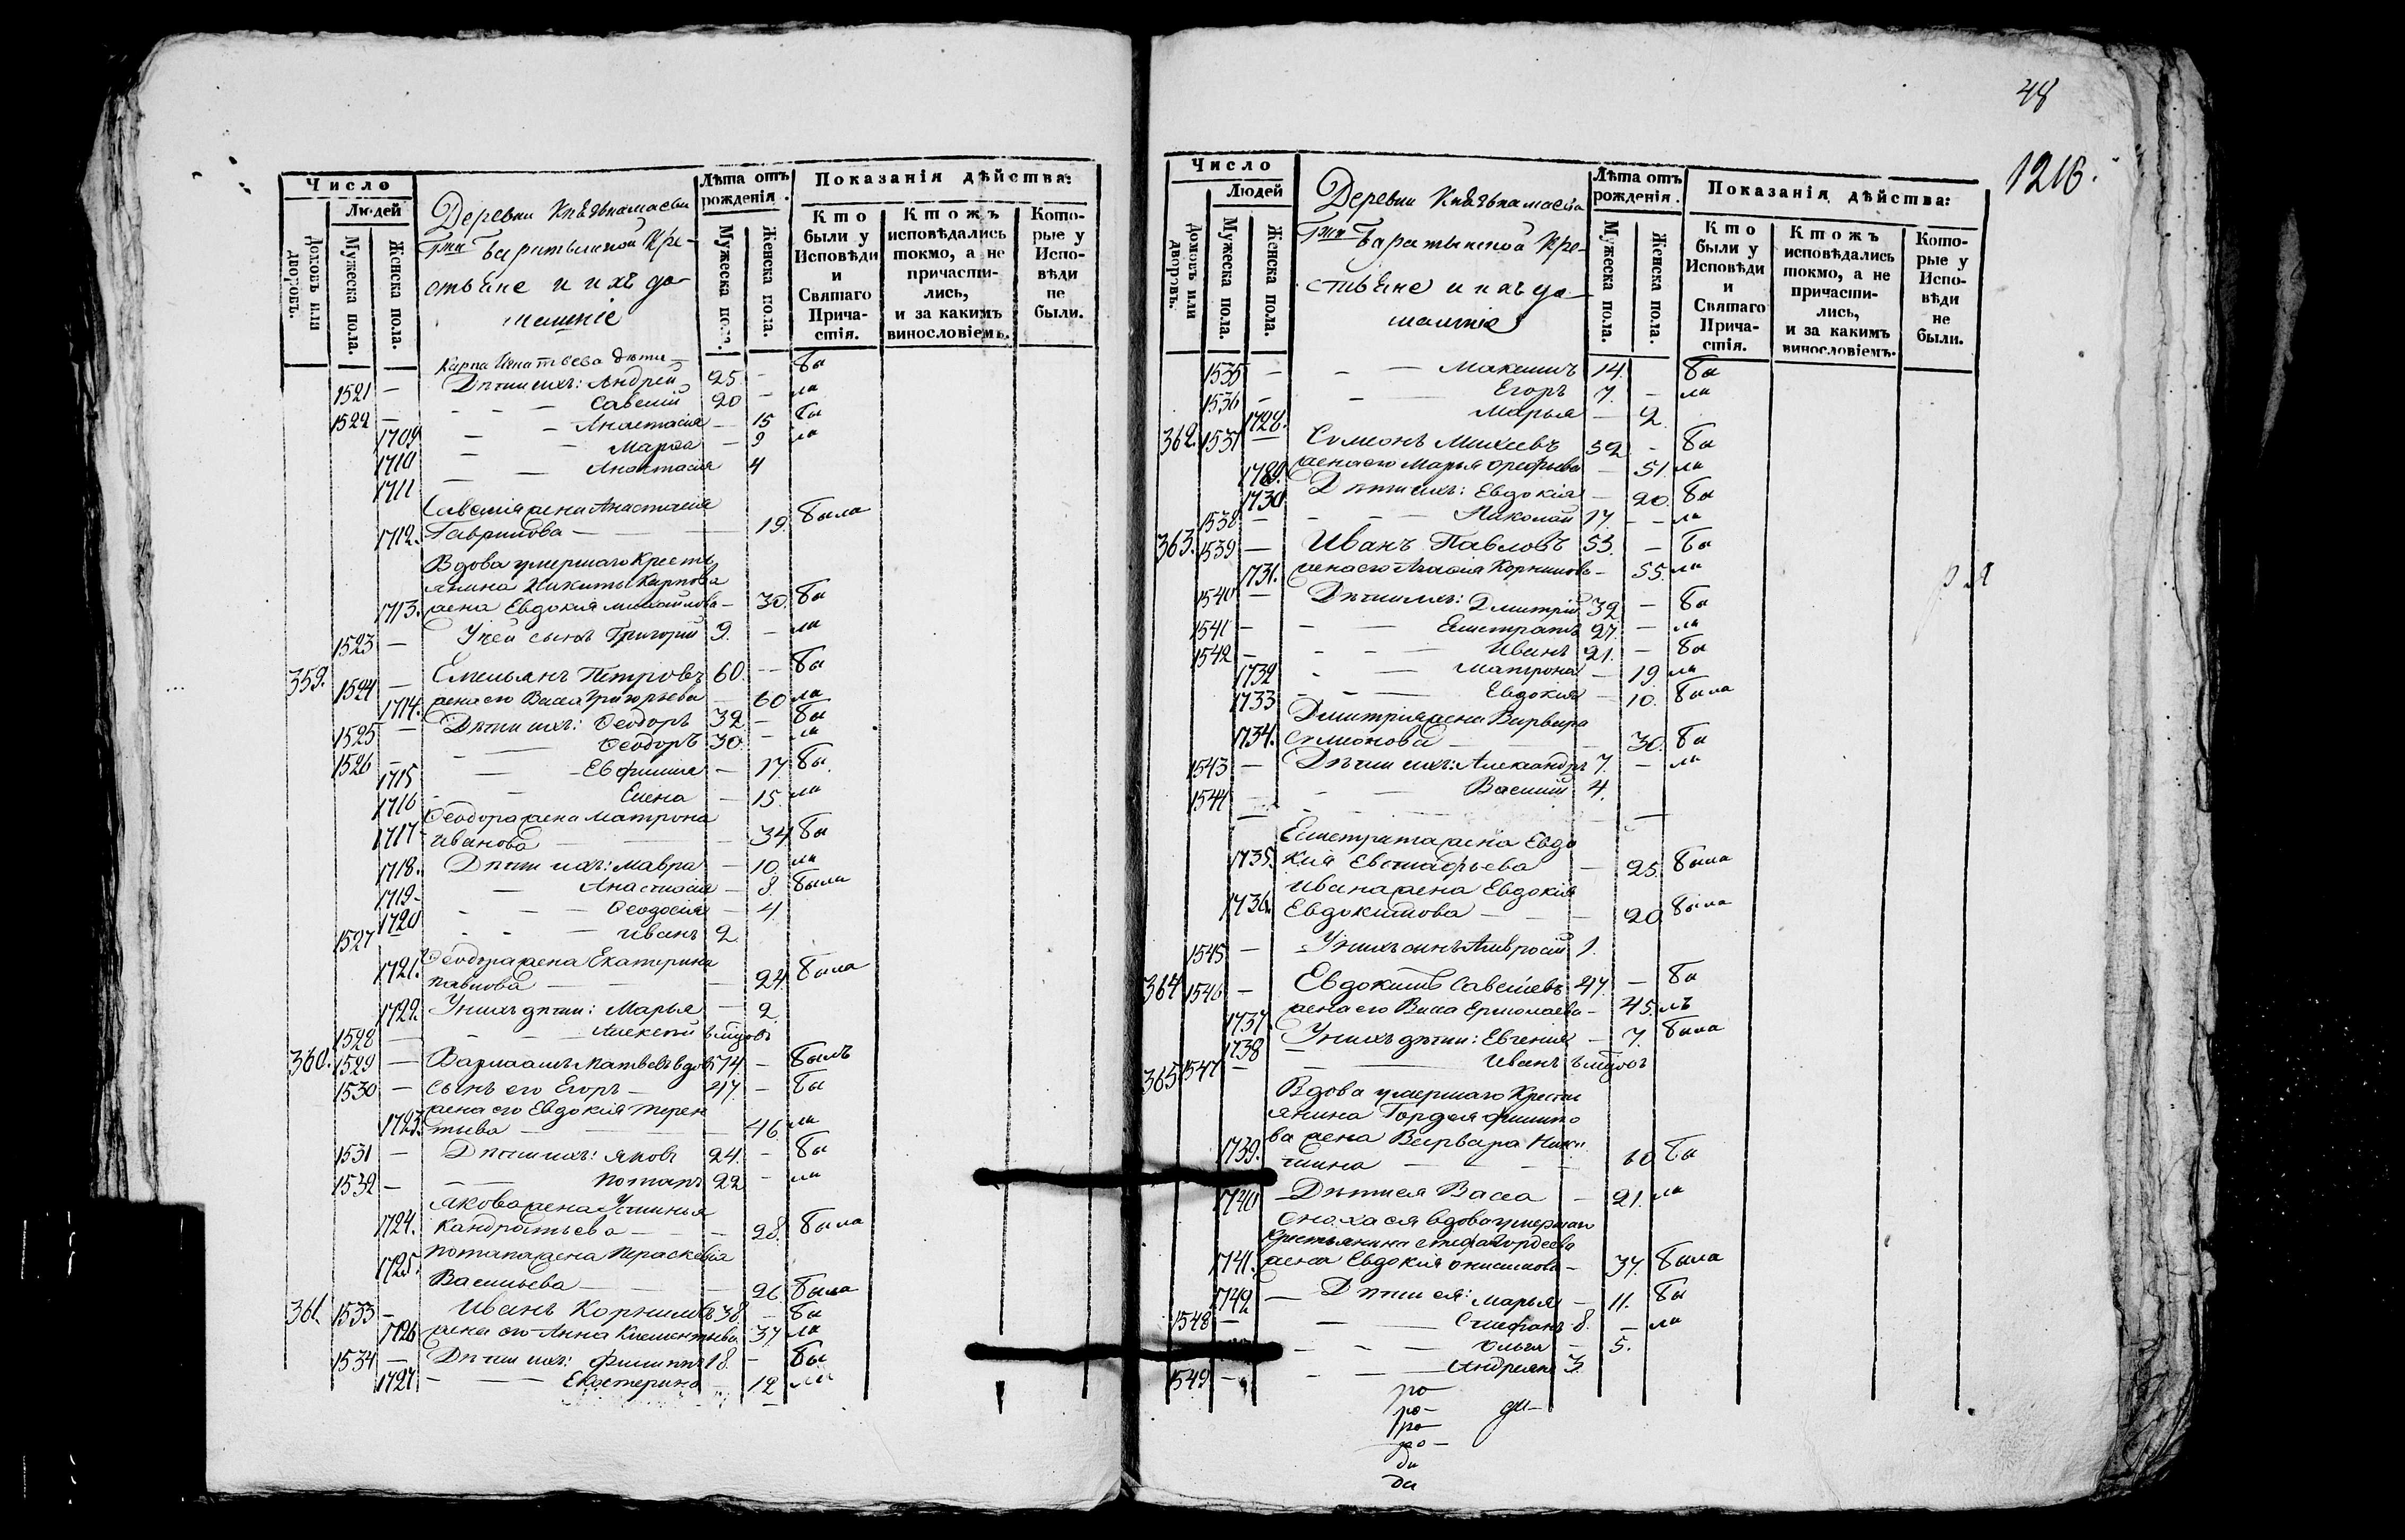 Число
Людей
Домовъ или дворовъ.
Мужеска пола.
Женска пола.
Деревни Князька маеви
Гжи Баратынской Кре-
стьяне и ихъ до-
машніе
Лѣта отъ рожденія.
Мужеска пола.
Женска пола.
Показанія дѣйства:
Кто были у Исповѣди и Святаго Причастія.
Ктожъ исповѣдались токмо, а не причастились, и за какимъ винословіемъ.
Которые у Исповѣди не были.
Карпа Игнатьева дѣти
1521 — Дѣти ихъ: Андрей 25 — бы
1522 — Савелій 20 — ли
1709 — Анастасія — 15 бы
1710 — Марѳа — 9 ли
1711 — Анастасія 4
Савелія жена Анастасія
1712. Гаврилова — 19. была
Вдова умершаго Кресть
янина Никиты Карпова
1713. жена Евдокія Михайлова — 30. бы
1523 — У ней сынъ Григорій 9. — ли
359. 1524 — Емельянъ Петровъ 60. — бы
1714. жена его Васса Григорьева — 60 ли
1525 — Дѣти ихъ: Ѳеодоръ 32 — бы
1526 — Ѳеодоръ 30. — ли
1715 — Евфимія — 17. бы
1716 — Елена — 15. ли
Ѳеодора жена Матрона
1717 Иванова — 34 бы
1718. Дѣти ихъ: Мавра — 10. ли
1719. — Анастасія — 8. была
1720 — Ѳеодосія — 4.
1527 — Иванъ 2.
Ѳеодора жена Екатерина
1721. Павлова — 24. была
1722. У нихъ дѣти: Марья — 2
1528 — Алексѣй
360. 1529 — Варлаамъ Матвѣевъ вдовъ 74. — былъ
1530 — сынъ его Егоръ — 47. — бы
жена его Евдокія Терен
1723. тьева — 46. ли
1531 — Дѣти ихъ: Яковъ 24. — бы
1532 — Потапъ 22 — ли
Якова жена Устинья
1724. Кандратьева — 28. была
Потапа жена Параскевія
1725. Васильева — 26 была
361. 1533 — Иванъ Корниловъ 38. — бы
1726 жена его Анна Клементьева 37 ли
1534 — Дѣти ихъ: Филиппъ 18. — бы
1727 — Екатерина — 12 ли
48
1216.
Число
Людей
Домовъ или дворовъ.
Мужеска пола.
Женска пола.
Деревни Князька маева
Гжи Баратынской Кре-
стьяне и ихъ до-
машніе
Лѣта отъ рожденія.
Мужеска пола.
Женска пола.
Показанія дѣйства:
Кто были у Исповѣди и Святаго Причастія.
Ктожъ исповѣдались токмо, а не причастились, и за какимъ винословіемъ.
Которые у Исповѣди не были.
1535 — Максимъ 14. бы
1536 — Егоръ 7. — ли
1728. Марья — 2.
362. 1537 — Симеонъ Михеевъ 52 — бы
1729. жена его Марья Орефьева — 51. ли
1730 Дѣти ихъ: Евдокія — 20. бы
1538 — Николай 17. — ли
363. 1539 — Иванъ Павловъ 53. — бы
1731. жена его Агаѳія Корнилова — 55. ли
1540 — Дѣти ихъ: Дмитрій 32 — бы
1541 — Елистратъ 27. — ли
1542 — Иванъ 21. — бы
1732 — Матрона — 19 ли
1733 — Евдокія — 10. была
Дмитрія жена Варвара
1734. Симіонова — 30. бы
1543 — Дѣти ихъ: Александръ 7. — ли
1544 — Василій 4.
Елистрата жена Евдо
1735. кія Евстафьева — 25. была
Ивана жена Евдокія
1736. Евдокимова — 20 была
1545 — У нихъ сынъ Амвросій 1.
364 1546 — Евдокимъ Савельевъ 47. — бы
1737 жена его Васса Ермолаева — 45. лъ
1738 У нихъ дѣти: Евгенія — 7. была
1547 — Иванъ
365 Вдова умершаго Кресть
янина Гордея Филипо
ва жена Варвара Ники
1739. тина — 60 бы
1740 Дѣти ея Васса — 21. ли
Сноха ея вдова умершаго
Крестьянина Стефа Гордеева
1741. жена Евдокія Онисимова — 37. была
1742 — Дѣти ея: Марья — 11. бы
1548 — Стефанъ 8. — ли
Ольга — 5.
1549 — Андреянъ 3.
ро
ро — ди —
ро
ро —
ди
ди